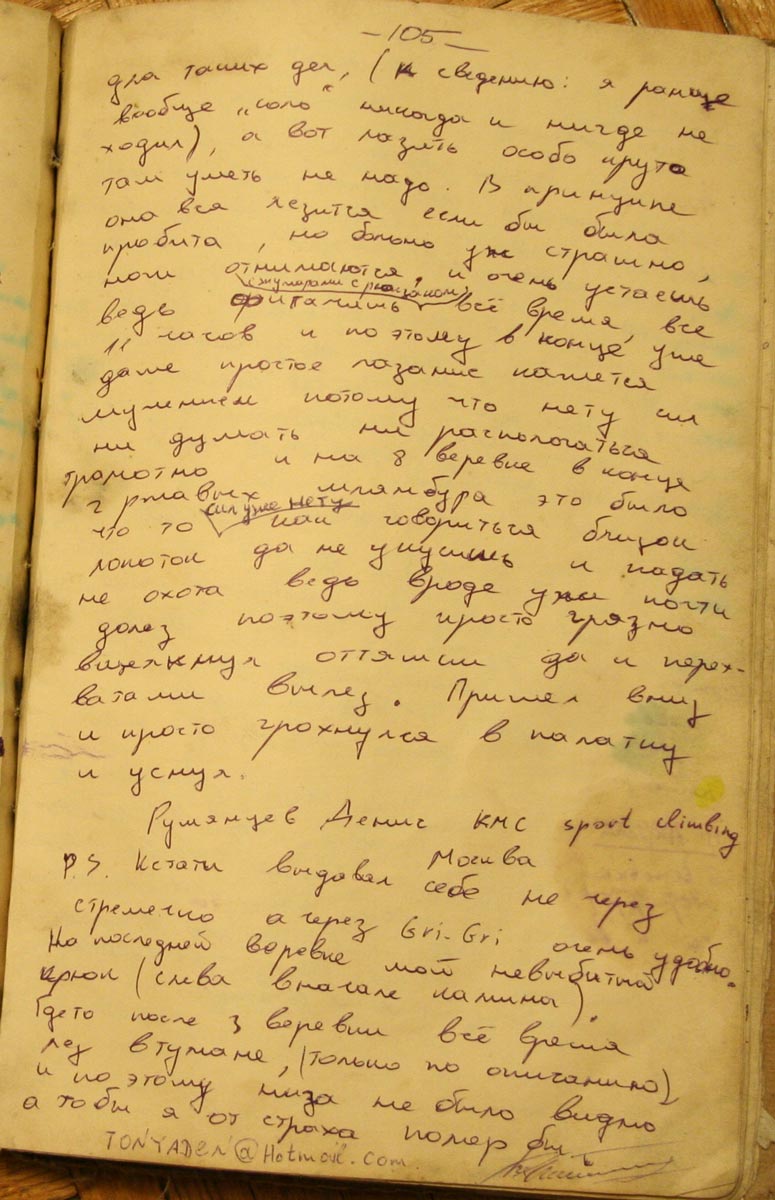 -105-
для таких дел, (к сведению: я раньше
вообще „соло“ никогда и нигде не
ходил), а вот лазить особо круто
там уметь не надо. В принципе
она вся лезится если бы была
пробита, но больно уж страшно,
ноги отнимаются, и очень устаешь
(жумарами с рюкзаком)
ведь фигачишь всё время, все
11 часов и поэтому в конце уже
даже простое лазание кажется
мучением потому что нету сил
ни думать ни распологаться
грамотно и на 8 веревке в конце
2 ржавых шлямбура это было
сил уже нету
что то как говориться близок
локоток да не укусишь и падать
не охота ведь вроде уже почти
долез поэтому просто грязно
вщелкнул оттяжки да и перех-
ватами вылез. Пришел вниз
и просто грохнулся в палатку
и уснул.
Румянцев Денис КМС sport climbing
Москва
P.S. Кстати выдавал себе не через
стремечко а через Gri-Gri очень удобно.
На последней веревке мой невыбитый
крюк (слева вначале камина).
Гдето после 3 веревки всё время
лез втумане, (только по описанию)
и по этому низа не было видно
а то бы я от страха помер бы.
TONYADEN@Hotmail.com